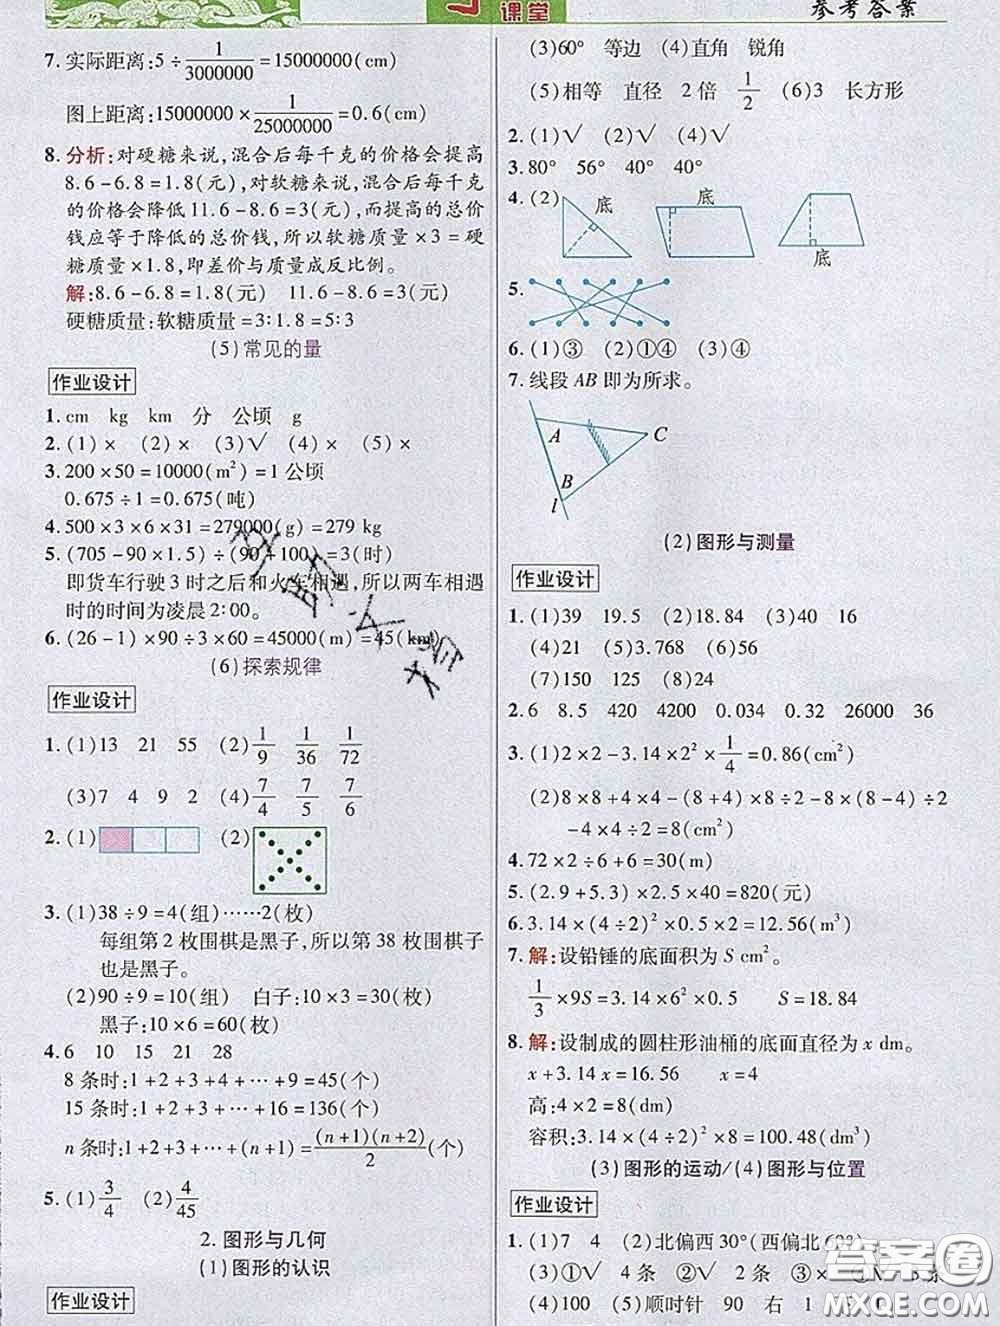 课堂
参考答案
7. 实际距离:5÷1/3000000=15000000(cm)
图上距离:15000000×1/25000000=0.6(cm)
8. 分析:对硬糖来说,混合后每千克的价格会提高
8.6-6.8=1.8(元),对软糖来说,混合后每千克
的价格会降低11.6-8.6=3(元),而提高的总价
钱应等于降低的总价钱,所以软糖质量×3=硬
糖质量×1.8,即差价与质量成反比例。
解:8.6-6.8=1.8(元) 11.6-8.6=3(元)
硬糖质量:软糖质量=3:1.8=5:3
(5)常见的量
作业设计
1. cm kg km 分 公顷 g
2. (1)× (2)× (3)√ (4)× (5)×
3. 200×50=10000(m²)=1公顷
0.675÷1=0.675(吨)
4. 500×3×6×31=279000(g)=279 kg
5. (705-90×1.5)÷(90+100)=3(时)
即货车行驶3时之后和火车相遇,所以两车相遇
时的时间为凌晨2:00。
6. (26-1)×90÷3×60=45000(m)=45(km)
(6)探索规律
作业设计
1. (1)13 21 55 (2)1/9 1/36 1/72
(3)7 4 9 2 (4)7/4 7/5 7/6
2. (1) (2)
3. (1)38÷9=4(组)……2(枚)
每组第2枚围棋是黑子,所以第38枚围棋子
也是黑子。
(2)90÷9=10(组) 白子:10×3=30(枚)
黑子:10×6=60(枚)
4. 6 10 15 21 28
8条时:1+2+3+4+…+9=45(个)
15条时:1+2+3+…+16=136(个)
n条时:1+2+3+…+(n+1)=(n+1)(n+2)/2(个)
5. (1)3/4 (2)4/45
2. 图形与几何
(1)图形的认识
作业设计
(3)60° 等边 (4)直角 锐角
(5)相等 直径 2倍 1/2 (6)3 长方形
2. (1)√ (2)√ (4)√
3. 80° 56° 40° 40°
4. (2) 底 底 底
5.
6. (1)③ (2)①④ (3)④
7. 线段AB即为所求。
A C
B
l
(2)图形与测量
作业设计
1. (1)39 19.5 (2)18.84 (3)40 16
(4)21 (5)3.768 (6)56
(7)150 125 (8)24
2. 6 8.5 420 4200 0.034 0.32 26000 36
3. (1)2×2-3.14×2²×1/4=0.86(cm²)
(2)8×8+4×4-(8+4)×8÷2-8×(8-4)÷2
-4×4÷2=8(cm²)
4. 72×2÷6+6=30(m)
5. (2.9+5.3)×2.5×40=820(元)
6. 3.14×(4÷2)²×0.5×2=12.56(m³)
7. 解:设铅锤的底面积为S cm²。
1/3×9S=3.14×6²×0.5 S=18.84
8. 解:设制成的圆柱形油桶的底面直径为x dm。
x+3.14x=16.56 x=4
高:4×2=8(dm)
容积:3.14×(4÷2)²×8=100.48(dm³)
(3)图形的运动/(4)图形与位置
作业设计
1. (1)7 4 (2)北偏西30°(西偏北60°)
(3)①√ 4条 ②√ 2条 ③×
(4)100 (5)顺时针 90 右 1
答案圈
MXQE.COM